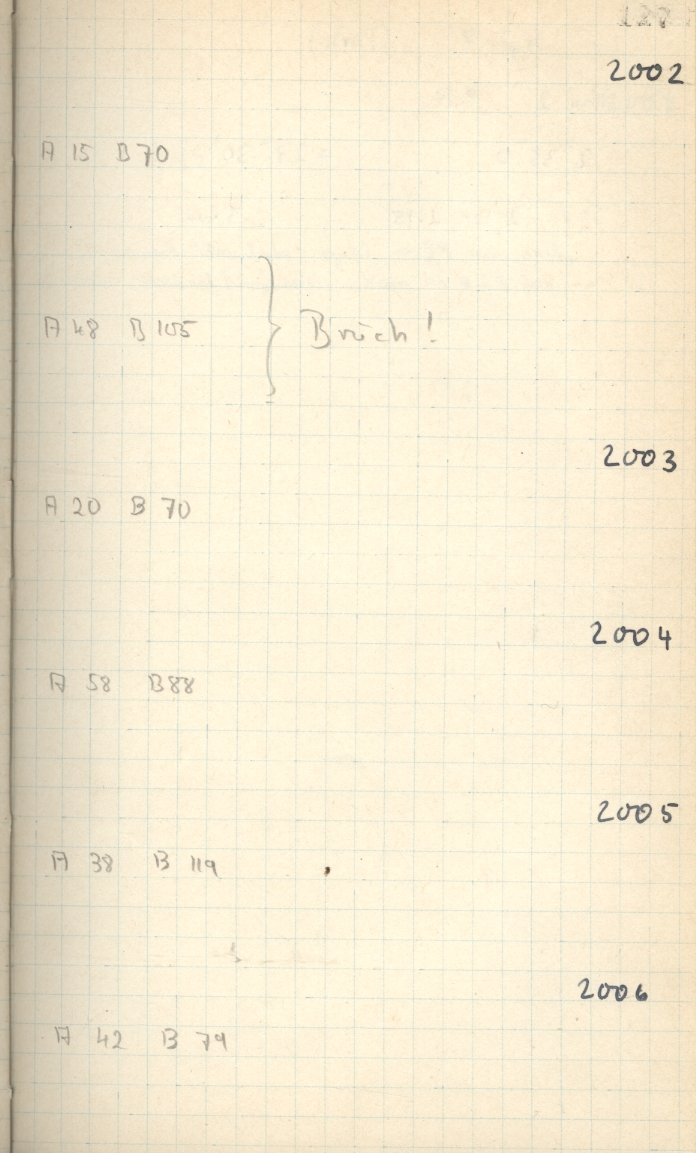 2002
A 15 B 70
A 48 B 105 } Bruch!
2003
A 20 B 70
2004
A 58 B 88
2005
A 38 B 119
2006
A 42 B 79